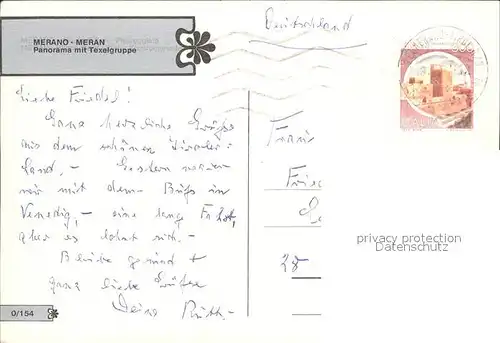 Deutschland
MERANO - MERAN
Panorama mit Texelgruppe
Liebe Friedel!
Ganz herzliche Grüße
aus dem schönen Tiroler-
land, - Gestern waren
wir mit dem Buß in
Venedig, - eine lange Fahrt,
aber es lohnt sich. -
Bleibe gesund +
ganz liebe Grüße
Deine Ruth. -
Frau
28
privacy protection
Datenschutz
0/154